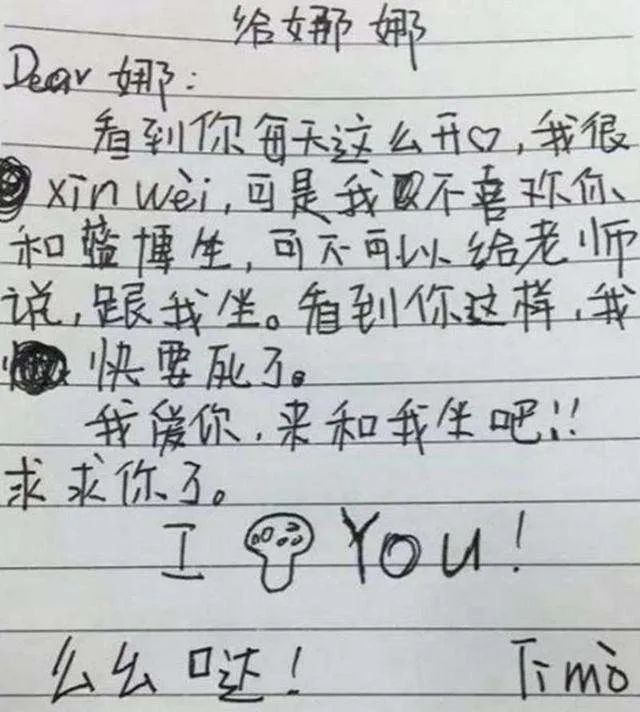 给娜娜
Dear 娜：
看到你每天这么开♡，我很
xin wèi，可是我又不喜欢你
和蓝博坐，可不可以给老师
说，跟我坐。看到你这样，我
快要死了。
我爱你，来和我坐吧!!
求求你了。
I You!
么么哒!
Timo